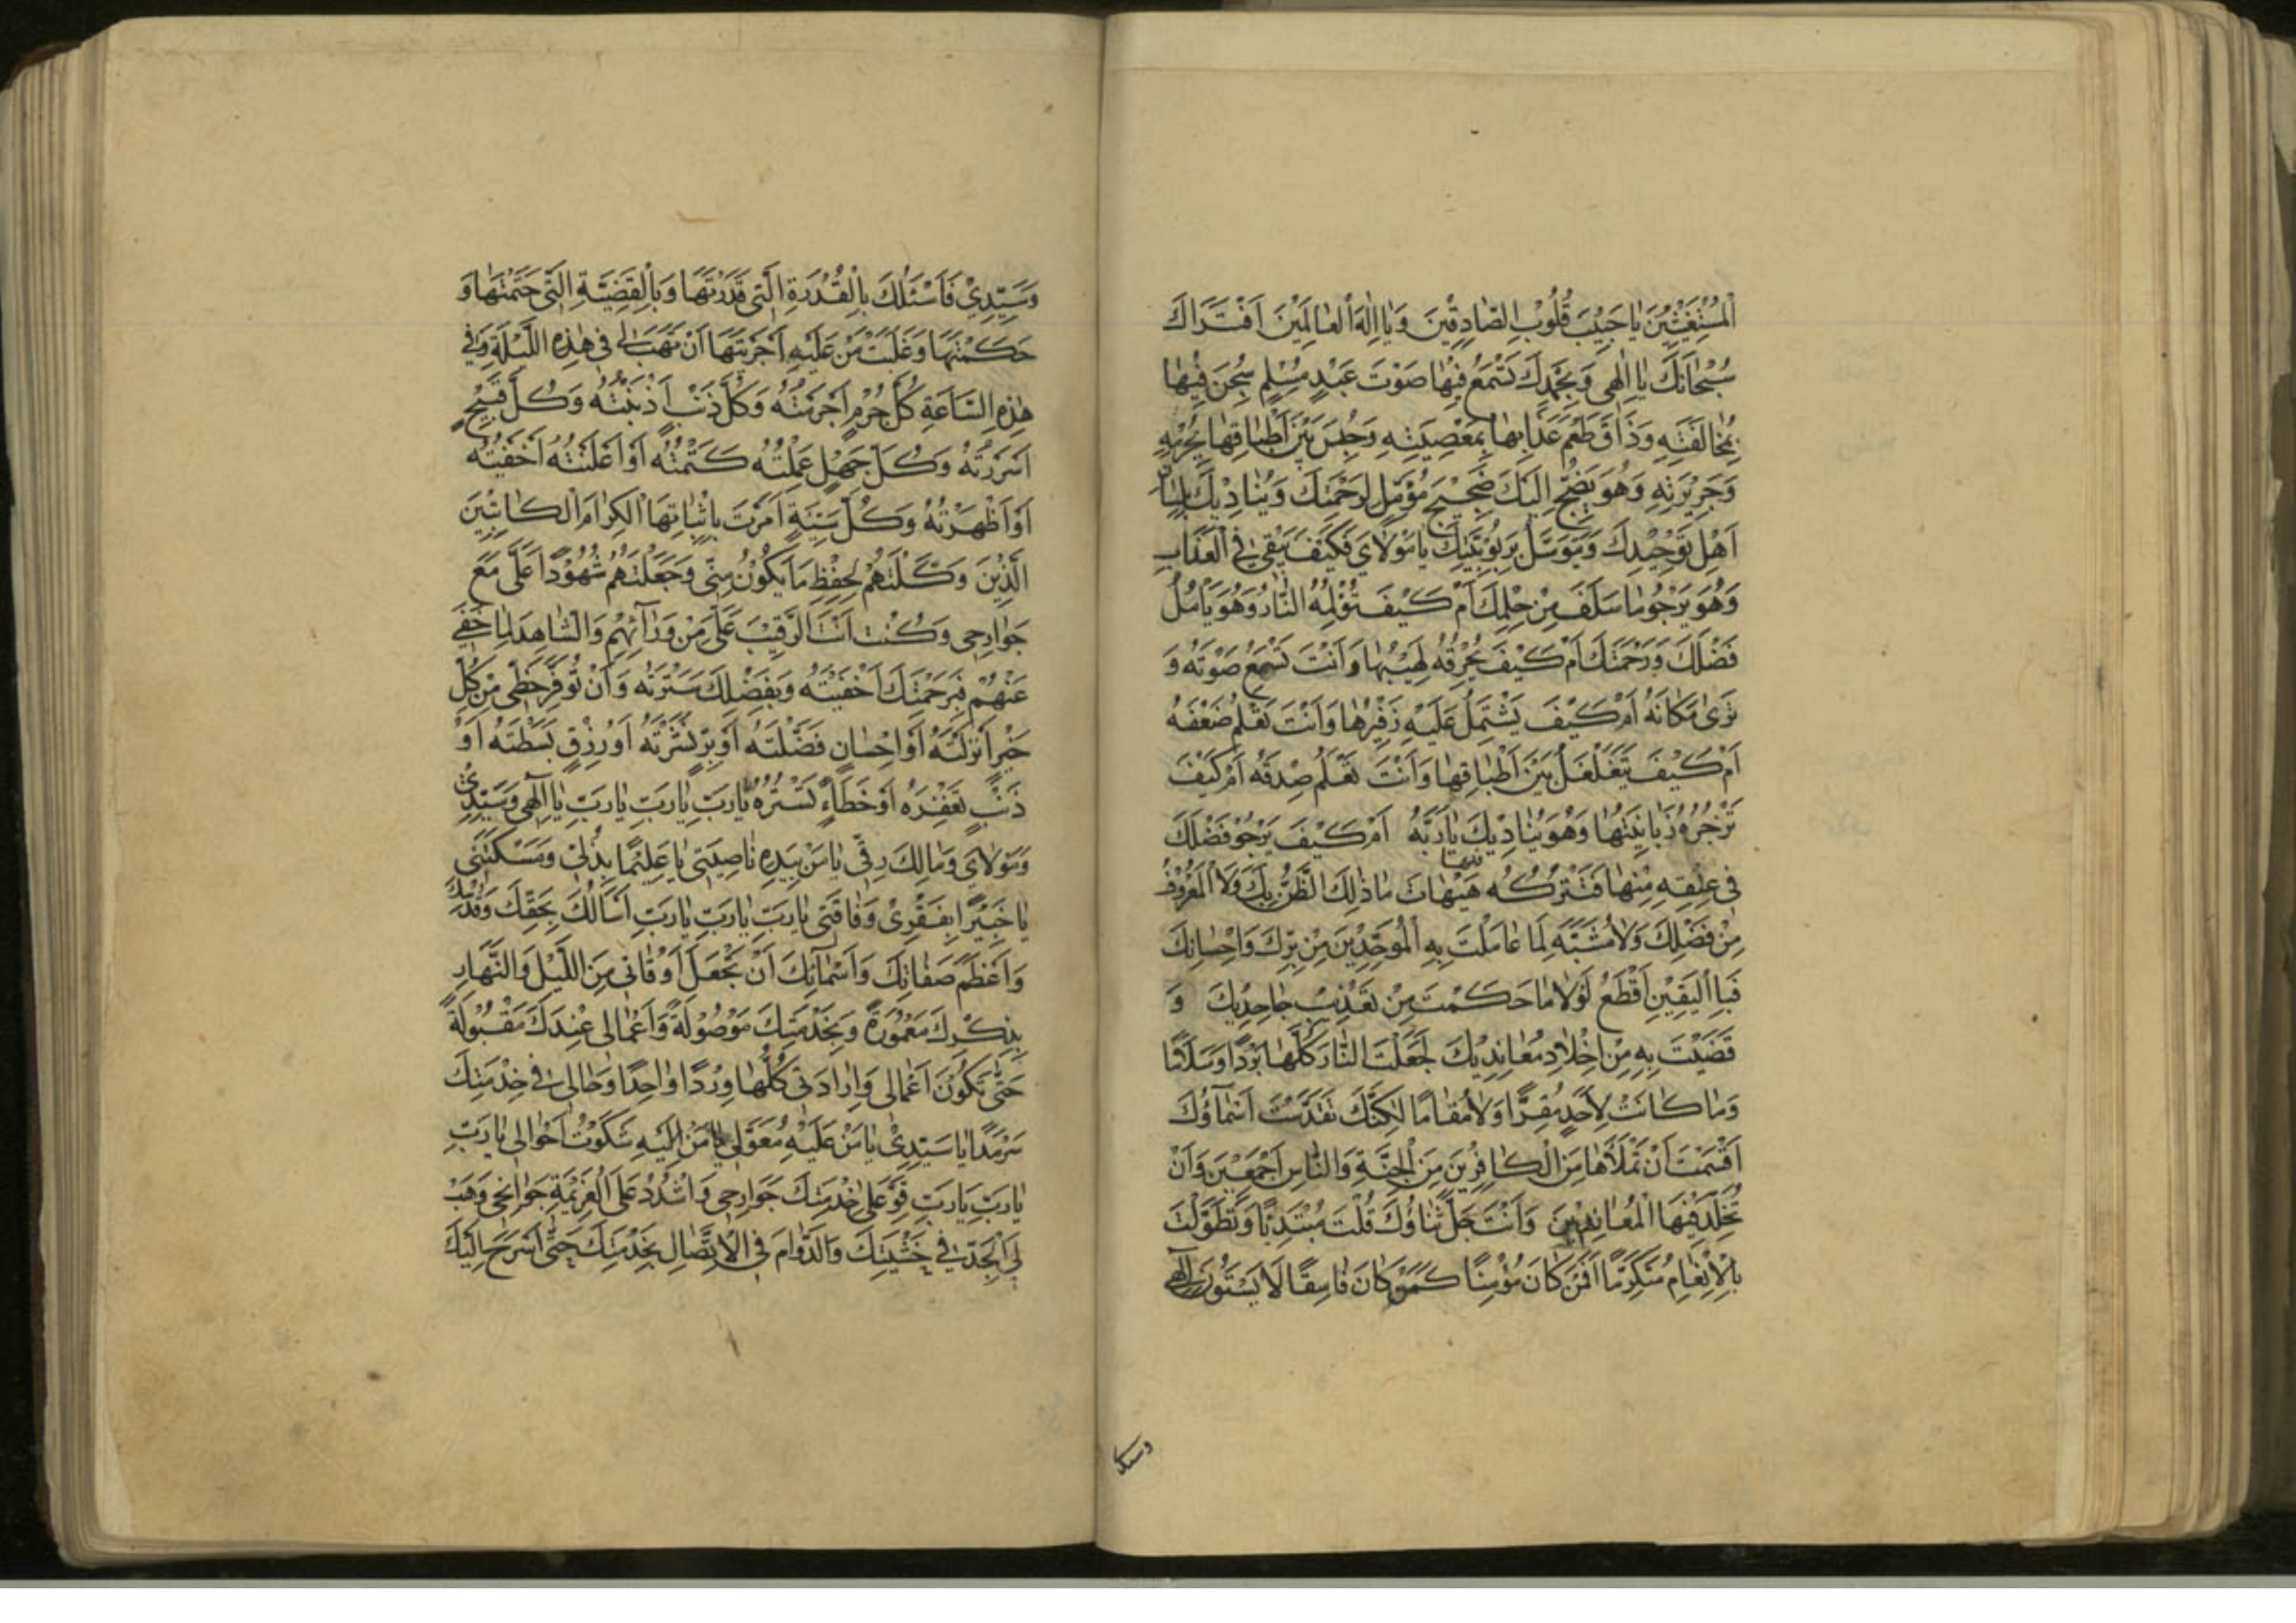 الْمُسْتَغِيثِينَ يَا حَبِيبَ قُلُوبِ الصَّادِقِينَ وَيَا إِلٰهَ الْعَالَمِينَ اَفَتُرَاكَ
سُبْحَانَكَ يَا اِلٰهِي وَبِحَمْدِكَ تَسْمَعُ فِيهَا صَوْتَ عَبْدٍ مُسْلِمٍ سُجِنَ فِيهَا
بِمُخَالَفَتِهِ وَذَاقَ طَعْمَ عَذَابِهَا بِمَعْصِيَتِهِ وَحُبِسَ بَيْنَ اَطْبَاقِهَا بِجُرْمِهِ
وَجَرِيرَتِهِ وَهُوَ يَضِجُّ اِلَيْكَ ضَجِيجَ مُؤَمِّلٍ لِرَحْمَتِكَ وَيُنَادِيكَ بِلِسَانِ
اَهْلِ تَوْحِيدِكَ وَيَتَوَسَّلُ بِرُبُوبِيَّتِكَ يَا مَوْلَايَ فَكَيْفَ يَبْقٰى فِي الْعَذَابِ
وَهُوَ يَرْجُو مَا سَلَفَ مِنْ حِلْمِكَ اَمْ كَيْفَ تُؤْلِمُهُ النَّارُ وَهُوَ يَاْمُلُ
فَضْلَكَ وَرَحْمَتَكَ اَمْ كَيْفَ يُحْرِقُهُ لَهِيبُهَا وَاَنْتَ تَسْمَعُ صَوْتَهُ وَ
تَرٰى مَكَانَهُ اَمْ كَيْفَ يَشْتَمِلُ عَلَيْهِ زَفِيرُهَا وَاَنْتَ تَعْلَمُ ضَعْفَهُ
اَمْ كَيْفَ يَتَغَلْغَلُ بَيْنَ اَطْبَاقِهَا وَاَنْتَ تَعْلَمُ صِدْقَهُ اَمْ كَيْفَ
تَزْجُرُهُ زَبَانِيَتُهَا وَهُوَ يُنَادِيكَ يَا رَبَّهُ اَمْ كَيْفَ يَرْجُو فَضْلَكَ
فِي عِتْقِهِ مِنْهَا فَتَتْرُكُهُ فِيهَا هَيْهَاتَ مَا ذٰلِكَ الظَّنُّ بِكَ وَلَا الْمَعْرُوفُ
مِنْ فَضْلِكَ وَلَا مُشْبِهٌ لِمَا عَامَلْتَ بِهِ الْمُوَحِّدِينَ مِنْ بِرِّكَ وَاِحْسَانِكَ
فَبِالْيَقِينِ اَقْطَعُ لَوْلَا مَا حَكَمْتَ مِنْ تَعْذِيبِ جَاحِدِيكَ وَ
قَضَيْتَ بِهِ مِنْ اِخْلَادِ مُعَانِدِيكَ لَجَعَلْتَ النَّارَ كُلَّهَا بَرْدًا وَسَلَامًا
وَمَا كَانَتْ لِاَحَدٍ مَقَرًّا وَلَا مُقَامًا لٰكِنَّكَ تَقَدَّسَتْ اَسْمَاؤُكَ
اَقْسَمْتَ اَنْ تَمْلَأَهَا مِنَ الْكَافِرِينَ مِنَ الْجِنَّةِ وَالنَّاسِ اَجْمَعِينَ وَاَنْ
تُخَلِّدَ فِيهَا الْمُعَانِدِينَ وَاَنْتَ جَلَّ ثَنَاؤُكَ قُلْتَ مُبْتَدِئًا وَتَطَوَّلْتَ
بِالْاِنْعَامِ مُتَكَرِّمًا اَفَمَنْ كَانَ مُؤْمِنًا كَمَنْ كَانَ فَاسِقًا لَا يَسْتَوُونَ اِلٰهِي
وسيدي
وَسَيِّدِي فَاَسْئَلُكَ بِالْقُدْرَةِ الَّتِي قَدَّرْتَهَا وَبِالْقَضِيَّةِ الَّتِي حَتَمْتَهَا وَ
حَكَمْتَهَا وَغَلَبْتَ مَنْ عَلَيْهِ اَجْرَيْتَهَا اَنْ تَهَبَ لِي فِي هٰذِهِ اللَّيْلَةِ وَفِي
هٰذِهِ السَّاعَةِ كُلَّ جُرْمٍ اَجْرَمْتُهُ وَكُلَّ ذَنْبٍ اَذْنَبْتُهُ وَكُلَّ قَبِيحٍ
اَسْرَرْتُهُ وَكُلَّ جَهْلٍ عَمِلْتُهُ كَتَمْتُهُ اَوْ اَعْلَنْتُهُ اَخْفَيْتُهُ
اَوْ اَظْهَرْتُهُ وَكُلَّ سَيِّئَةٍ اَمَرْتَ بِاِثْبَاتِهَا الْكِرَامَ الْكَاتِبِينَ
الَّذِينَ وَكَّلْتَهُمْ بِحِفْظِ مَا يَكُونُ مِنِّي وَجَعَلْتَهُمْ شُهُودًا عَلَيَّ مَعَ
جَوَارِحِي وَكُنْتَ اَنْتَ الرَّقِيبَ عَلَيَّ مِنْ وَرَآئِهِمْ وَالشَّاهِدَ لِمَا خَفِيَ
عَنْهُمْ فَبِرَحْمَتِكَ اَخْفَيْتَهُ وَبِفَضْلِكَ سَتَرْتَهُ وَاَنْ تُوَفِّرَ حَظِّي مِنْ كُلِّ
خَيْرٍ اَنْزَلْتَهُ اَوْ اِحْسَانٍ فَضَّلْتَهُ اَوْ بِرٍّ نَشَرْتَهُ اَوْ رِزْقٍ بَسَطْتَهُ اَوْ
ذَنْبٍ تَغْفِرُهُ اَوْ خَطَاءٍ تَسْتُرُهُ يَا رَبِّ يَا رَبِّ يَا رَبِّ يَا اِلٰهِي وَسَيِّدِي
وَمَوْلَايَ وَمَالِكَ رِقِّي يَا مَنْ بِيَدِهِ نَاصِيَتِي يَا عَلِيمًا بِذُلِّي وَمَسْكَنَتِي
يَا خَبِيرًا بِفَقْرِي وَفَاقَتِي يَا رَبِّ يَا رَبِّ يَا رَبِّ اَسْاَلُكَ بِحَقِّكَ وَقُدْسِكَ
وَاَعْظَمِ صِفَاتِكَ وَاَسْمَآئِكَ اَنْ تَجْعَلَ اَوْقَاتِي مِنَ اللَّيْلِ وَالنَّهَارِ
بِذِكْرِكَ مَعْمُورَةً وَبِخِدْمَتِكَ مَوْصُولَةً وَاَعْمَالِي عِنْدَكَ مَقْبُولَةً
حَتّٰى تَكُونَ اَعْمَالِي وَاِرَادَتِي كُلُّهَا وِرْدًا وَاحِدًا وَحَالِي فِي خِدْمَتِكَ
سَرْمَدًا يَا سَيِّدِي يَا مَنْ عَلَيْهِ مُعَوَّلِي يَا مَنْ اِلَيْهِ شَكَوْتُ اَحْوَالِي يَا رَبِّ
يَا رَبِّ يَا رَبِّ قَوِّ عَلٰى خِدْمَتِكَ جَوَارِحِي وَاشْدُدْ عَلَى الْعَزِيمَةِ جَوَانِحِي وَهَبْ
لِيَ الْجِدَّ فِي خَشْيَتِكَ وَالدَّوَامَ فِي الْاِتِّصَالِ بِخِدْمَتِكَ حَتّٰى اَسْرَحَ اِلَيْكَ